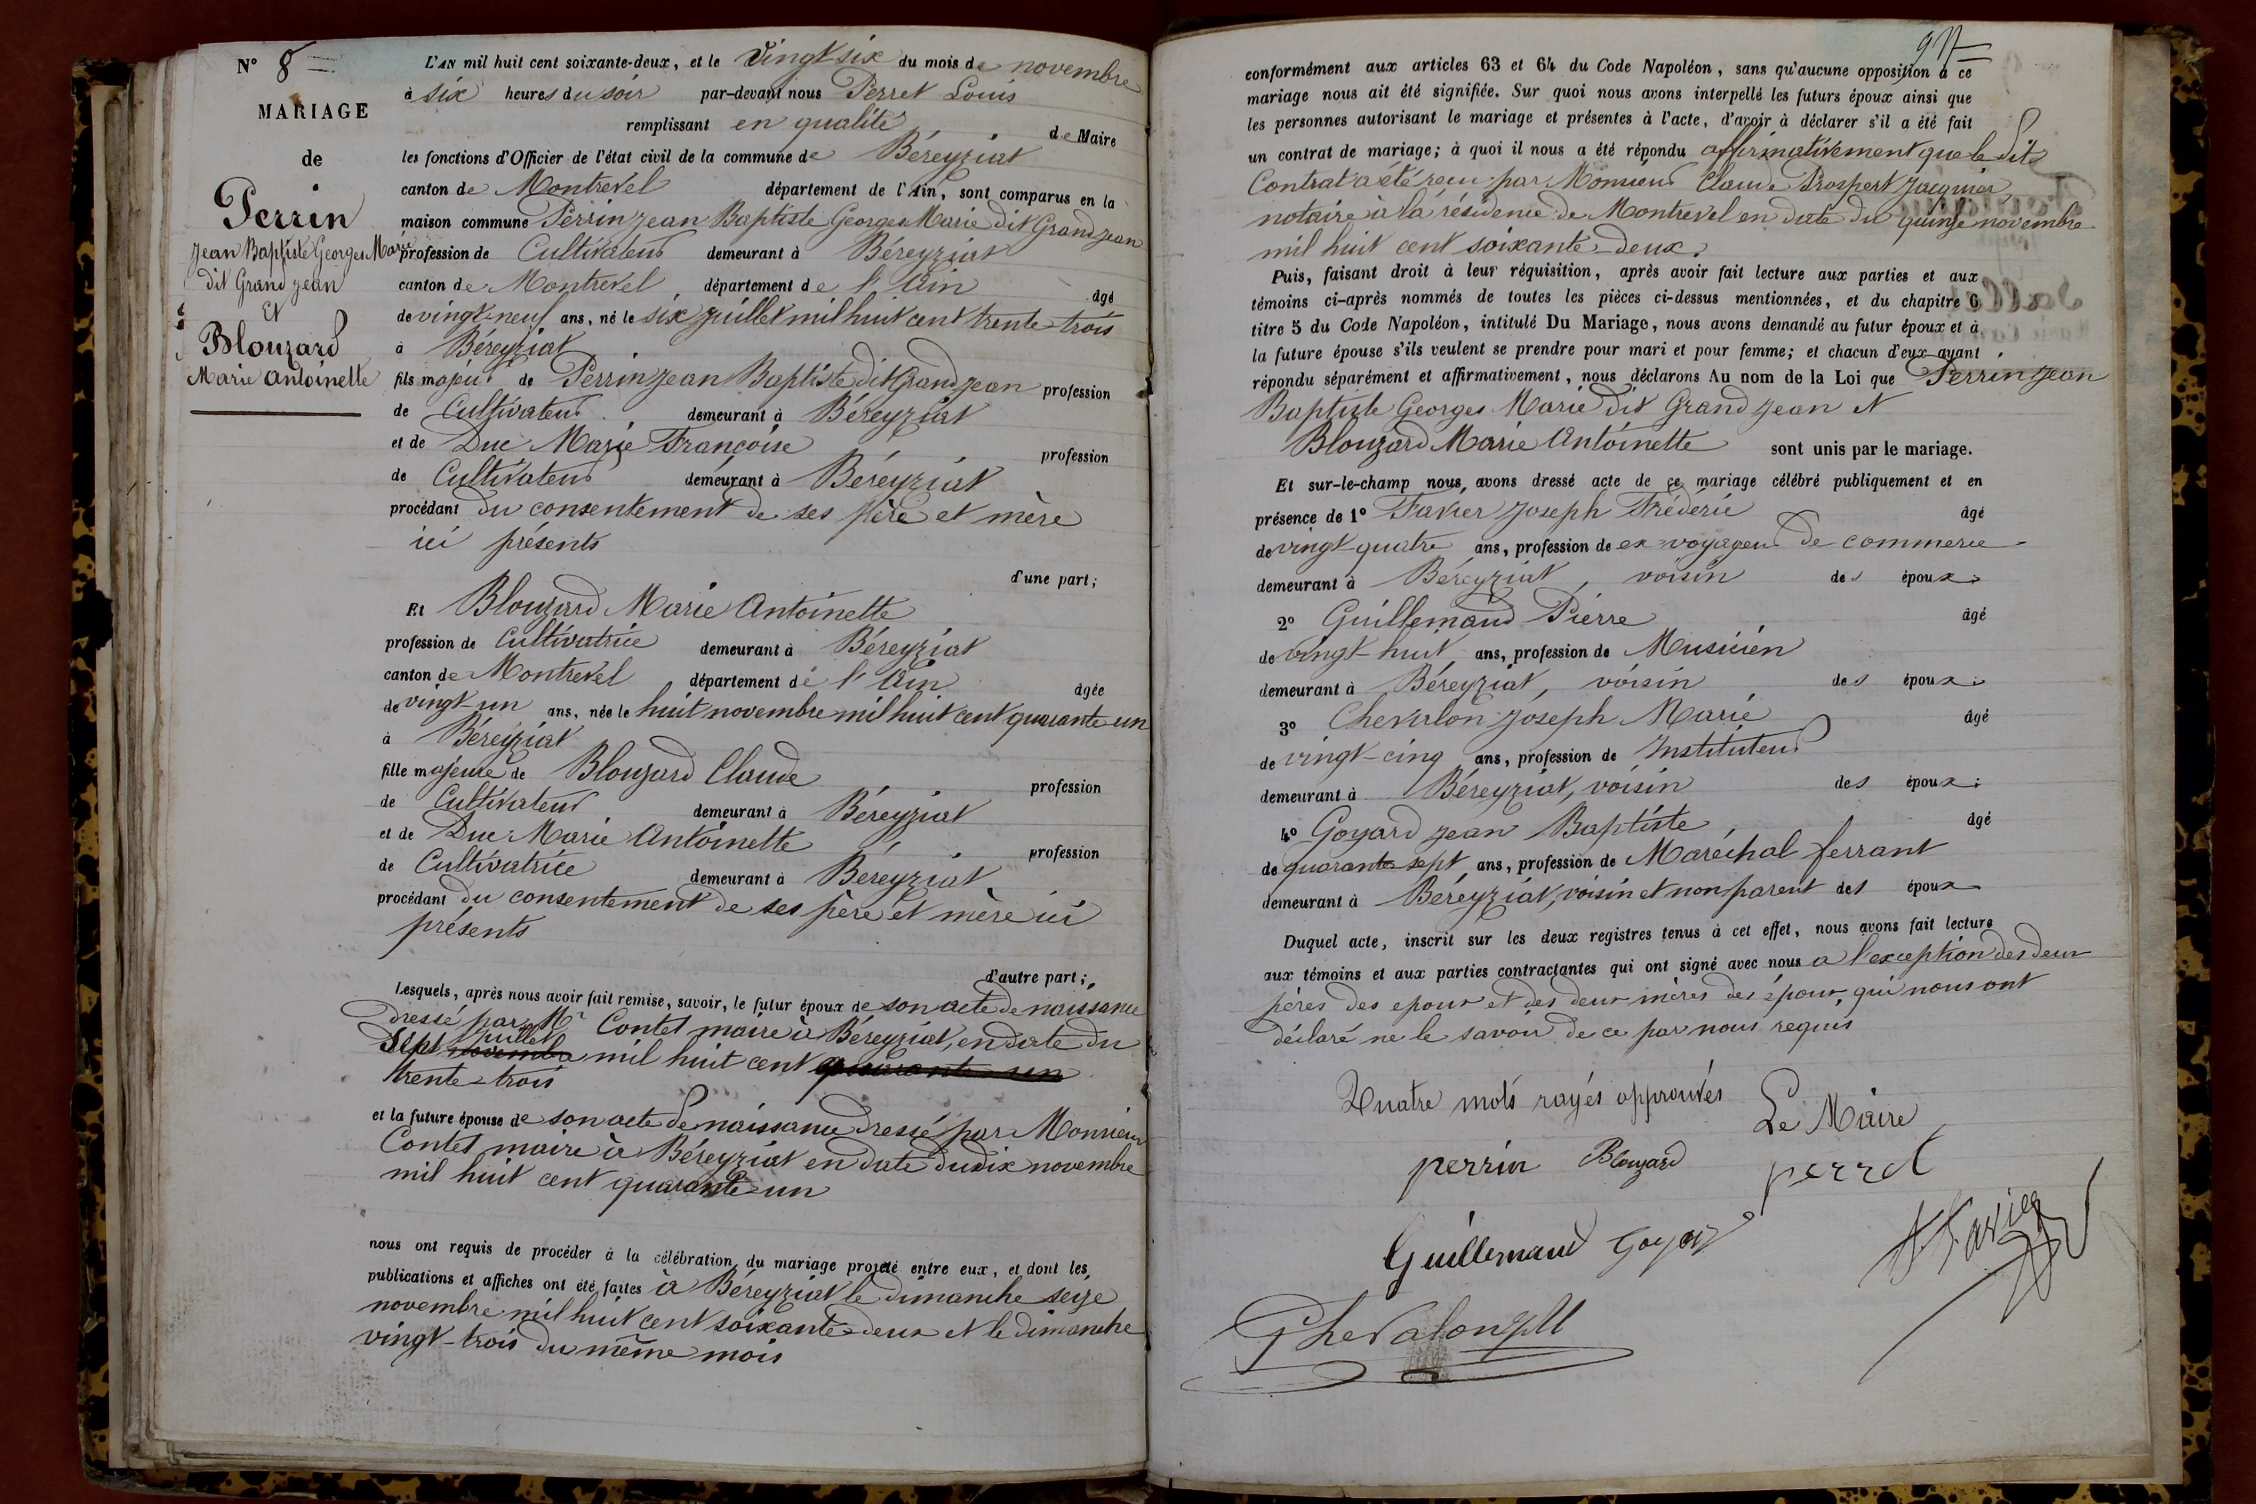 N° 8
MARIAGE
de
Perrin
Jean Baptiste Georges Marie
dit Grand Jean
Et
Blouzard
Marie Antoinette
L'AN mil huit cent soixante-deux, et le Vingt six du mois de novembre
à six heures du soir par-devant nous Perret Louis
remplissant en qualité de Maire
les fonctions d'Officier de l'état civil de la commune de Béreyziat
canton de Montrevel département de l'Ain, sont comparus en la
maison commune Perrin Jean Baptiste Georges Marie dit Grand Jean
profession de Cultivateur demeurant à Béreyziat
canton de Montrevel, département de l'Ain âgé
de vingt-neuf ans, né le six juillet mil huit cent trente-trois
à Béreyziat
fils majeur de Perrin Jean Baptiste dit Grand Jean profession
de Cultivateur demeurant à Béreyziat
et de Duc Marie Françoise profession
de Cultivateur demeurant à Béreyziat
procédant du consentement de ses père et mère
ici présents
d'une part;
Et Blouzard Marie Antoinette
profession de Cultivatrice demeurant à Béreyziat
canton de Montrevel département de l'Ain âgée
de vingt-un ans, née le huit novembre mil huit cent quarante-un
à Béreyziat
fille majeure de Blouzard Claude profession
de Cultivateur demeurant à Béreyziat
et de Duc Marie Antoinette profession
de Cultivatrice demeurant à Béreyziat
procédant du consentement de ses père et mère ici
présents
d'autre part;
Lesquels, après nous avoir fait remise, savoir, le futur époux de son acte de naissance
dressé par Mr Contet maire à Béreyziat, en date du
juillet
Sept novembre mil huit cent quarante-un
trente-trois
et la future épouse de son acte de naissance dressé par Monsieur
Contet maire à Béreyziat en date du dix novembre
mil huit cent quarante-un
nous ont requis de procéder à la célébration du mariage projeté entre eux, et dont les
publications et affiches ont été faites à Béreyziat le dimanche seize
novembre mil huit cent soixante-deux et le dimanche
vingt-trois du même mois
conformément aux articles 63 et 64 du Code Napoléon, sans qu'aucune opposition à ce
mariage nous ait été signifiée. Sur quoi nous avons interpellé les futurs époux ainsi que
les personnes autorisant le mariage et présentes à l'acte, d'avoir à déclarer s'il a été fait
un contrat de mariage; à quoi il nous a été répondu affirmativement que le dit
Contrat a été reçu par Monsieur Claude Prospert Jacquier
notaire à la résidence de Montrevel en date du quinze novembre
mil huit cent soixante-deux.
Puis, faisant droit à leur réquisition, après avoir fait lecture aux parties et aux
témoins ci-après nommés de toutes les pièces ci-dessus mentionnées, et du chapitre 6
titre 5 du Code Napoléon, intitulé Du Mariage, nous avons demandé au futur époux et à
la future épouse s'ils veulent se prendre pour mari et pour femme; et chacun d'eux ayant
répondu séparément et affirmativement, nous déclarons Au nom de la Loi que Perrin Jean
Baptiste Georges Marie dit Grand Jean et
Blouzard Marie Antoinette sont unis par le mariage.
Et sur-le-champ nous avons dressé acte de ce mariage célébré publiquement et en
présence de 1° Favier Joseph Fréderic âgé
de vingt-quatre ans, profession de ex voyageur de commerce
demeurant à Béreyziat, voisin des époux;
2° Guillemaud Pierre âgé
de vingt-huit ans, profession de Musicien
demeurant à Béreyziat, voisin des époux;
3° Chevalon Joseph Marie âgé
de vingt-cinq ans, profession de Instituteur
demeurant à Béreyziat, voisin des époux;
4° Goyard Jean Baptiste âgé
de quarante-sept ans, profession de Maréchal ferrant
demeurant à Béreyziat, voisin et non parent des époux
Duquel acte, inscrit sur les deux registres tenus à cet effet, nous avons fait lecture
aux témoins et aux parties contractantes qui ont signé avec nous a l'exception des deux
pères des epoux et des deux mères des époux, qui nous ont
déclaré ne le savoir de ce par nous requis
Quatre mots rayés approuvés
Le Maire
perrin Blouzard perret
Guillemaud Goyard
Favier
Chevalon JM